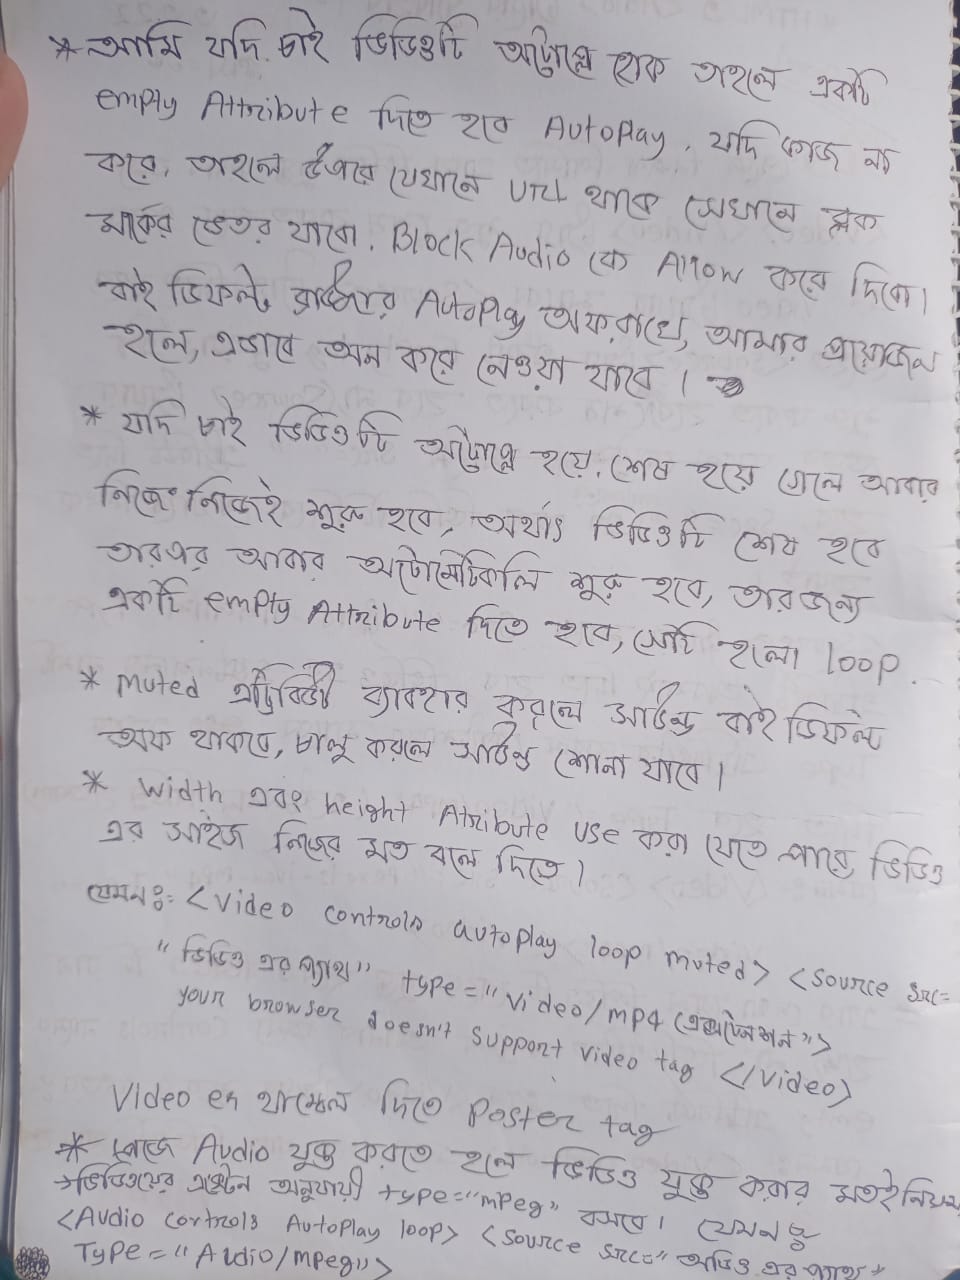 * আমি যদি চাই ভিডিওটি অটোপ্লে হোক তাহলে একটি
empty Attribute দিতে হবে AutoPlay. যদি কাজ না
করে, তাহলে উপরে যেখানে url থাকে সেখানে লক
মার্কের ভেতর যাবো. Block Audio কে Allow করে দিবো।
বাই ডিফল্ট ব্রাউজার AutoPlay অফ রাখে, আমার প্রয়োজন
হলে, এভাবে অন করে নেওয়া যাবে।
* যদি চাই ভিডিওটি অটোপ্লে হয়ে, শেষ হয়ে গেলে আবার
নিজে নিজেই শুরু হবে, অর্থাৎ ভিডিওটি শেষ হবে
তারপর আবার অটোমেটিকলি শুরু হবে, তার জন্য
একটি empty Attribute দিতে হবে, সেটি হলো loop.
* muted এট্রিবিউট ব্যাবহার করলে সাউন্ড বাই ডিফল্ট
অফ থাকবে, চালু করলে সাউন্ড শোনা যাবে।
* width এবং height Atribute use করা যেতে পারে ভিডিও
এর সাইজ নিজের মত বলে দিতে।
যেমনঃ- <Video controls autoplay loop muted> <source src=
"ভিডিও এর প্যাথ" type="video/mp4 (এক্সটেনশন")>
your browser doesn't support video tag </video>
Video en থাম্বেল দিতে Poster tag
* পেজে Audio যুক্ত করতে হলে ভিডিও যুক্ত করার মতই নিয়ম
→ ভিডিওয়ের এক্সটেন অনুযায়ী type="mpeg" বসবে। যেমনঃ
<Audio controls AutoPlay loop> <source src=" অডিও এর প্যাথ"
Type="Audio/mpeg">